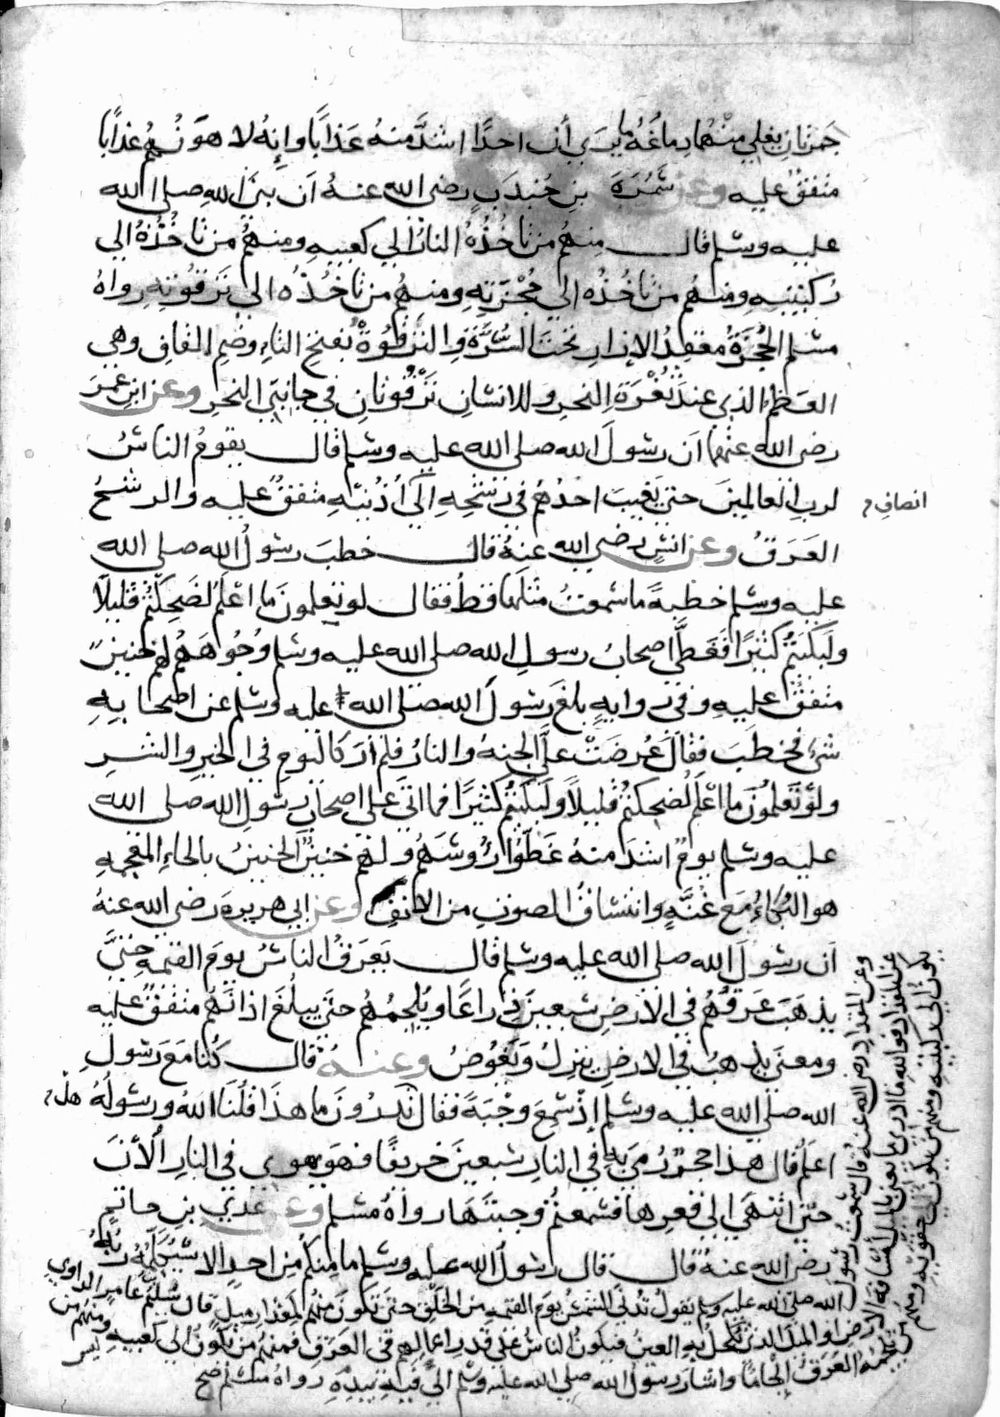 جمرتان يغلي منهما دماغه ما يرى أن احدًا اشدَّ منه عذابًا وإنه لاهونهم عذابًا
متفق عليه وعن سَمُرَةَ بنِ جُندَبٍ رضي الله عنهُ اَن نبيَّ اللهِ صلى الله
عليه وسلم قال منهم من تاخُذُهُ النارُ الي كعبيهِ ومنهم من تاخُذُهُ الي
ركبتيهِ ومنهم من تاخُذُه الي حُجْزَتِهِ ومنهم من تاخُذُه الى تَرقُوَتِهِ رواهُ
مسلم الحُجْزَةُ معقِدُ الازارِ تحتَ السُّرَّةِ والتَرقُوَةُ بفتح التاءِ وضم القافِ وهي
العَظمُ الذي عندَ ثُغْرَةِ النحرِ وللانسانِ تَرْقُوتانِ في جانبَيِ النحرِ وعن ابنِ عمرَ
رضى الله عنهما اَن رسولَ الله صلى الله عليه وسلم قال يقومُ الناسُ
لربِ العالمينَ حتى يَغيبَ احدُهُم في رَشْحِهِ الى أنصافِ أُذُنَيْهِ متفقٌ عليه والرشحُ
العَرَقُ وعن انسٍ رضي الله عنهُ قال خطبَ رسولُ الله صلى الله
عليه وسلم خطبةً ما سمعتُ مثلَها قط فقال لو تعلمونَ ما اعْلَمُ لضحِكتُم قليلًا
ولَبكَيتُم كثيرًا فغَطَّى اصحابُ رسولِ الله صلى الله عليه وسلم وُجُوهَهُم لهم خنينٌ
متفقٌ عليهِ وفي روايةٍ بلغَ رسولَ الله صلى الله عليه وسلم عن اصحابِهِ
شيءٌ فخطَبَ فقالَ عُرضَتْ عليَّ الجنة والنارُ فلم أرَ كاليومِ في الخيرِ والشرِ
ولَوْ تَعلمُونَ ما اعْلَمُ لضحِكتُم قليلًا ولَبكَيتُم كثيرًا فما اتى على اصحابِ رسولِ الله صلى الله
عليه وسلم يومٌ اشدَ منه غَطَّوْا رُؤسَهُم ولهم خنينٌ الخنينُ بالخاءِ المعجمةِ
هو البُكاءُ مع غُنَّةٍ وانتشاقُ الصوتِ من الانفِ وعن ابي هريرةَ رضى الله عنهُ
اَن رسولَ الله صلى الله عليه وسلم قال يَعرَقُ الناسُ يومَ القيمةِ حتىَّ
يذهَبَ عَرَقُهُم في الارضِ سبعينَ ذراعًا ويُلجِمُهُم حتى يبلُغَ اذانَهُم متفقٌ عليه
ومعنى يذهبُ في الارضِ ينزلُ ويَغُوصُ وعنهُ قال كُنا مَعَ رَسُولِ
الله صلى الله عليه وسلم إذ سمِعَ وَجْبَةً فقال هل تَدرُونَ ما هذَا قُلنَا اللهُ ورسولُهُ
اعلَمُ قال هذا حجرٌ رُميَ بهِ في النارِ سبعينَ خريفًا فهوَ يهوي في النارِ اَلْآنَ
حتى انتهَي الي قعرِها فسَمعتُمْ وجبتَهَا رواهُ مسلم وعن عَديِ بنِ حاتمٍ
رضى الله عنهُ قال قال رسُولُ الله صلى الله عليه وسلم ما منكُم مِن احدٍ الا سَيُكَلِّمُهُ رَبُّهُ
ليس
وعن المقدادِ رضى الله عنهُ قال سمعتُ رسُولَ
الله صلى الله عليه وسلم يقول تُدنَي الشمسُ يومَ القيمةِ من الخَلقِ حتى تكونَ منهُم كمقدارِ ميلٍ قال سُلَيْمُ بنُ عامرٍ الراوي
عن المقدادِ فواللهِ ما ادري ما يعني بالميلِ أَمَسافةَ
الارضِ اَو الميلَ الذي تُكحَلُ بهِ العينُ فيكُونُ الناسُ علي قدرِ اعمالِهم في العَرَقِ فمنهُم من يَكُونُ الي كعبيهِ ومنهُم من
يَكُونُ الي رُكبتيهِ ومنهُم من يكُونُ الي حَقوَيْهِ ومنهُم
من يُلجِمُهُ العَرَقُ الجامًا واشارَ رسُولُ الله صلى الله عليه وسلم الي فيهِ بيدِهِ رواهُ مسلم صح